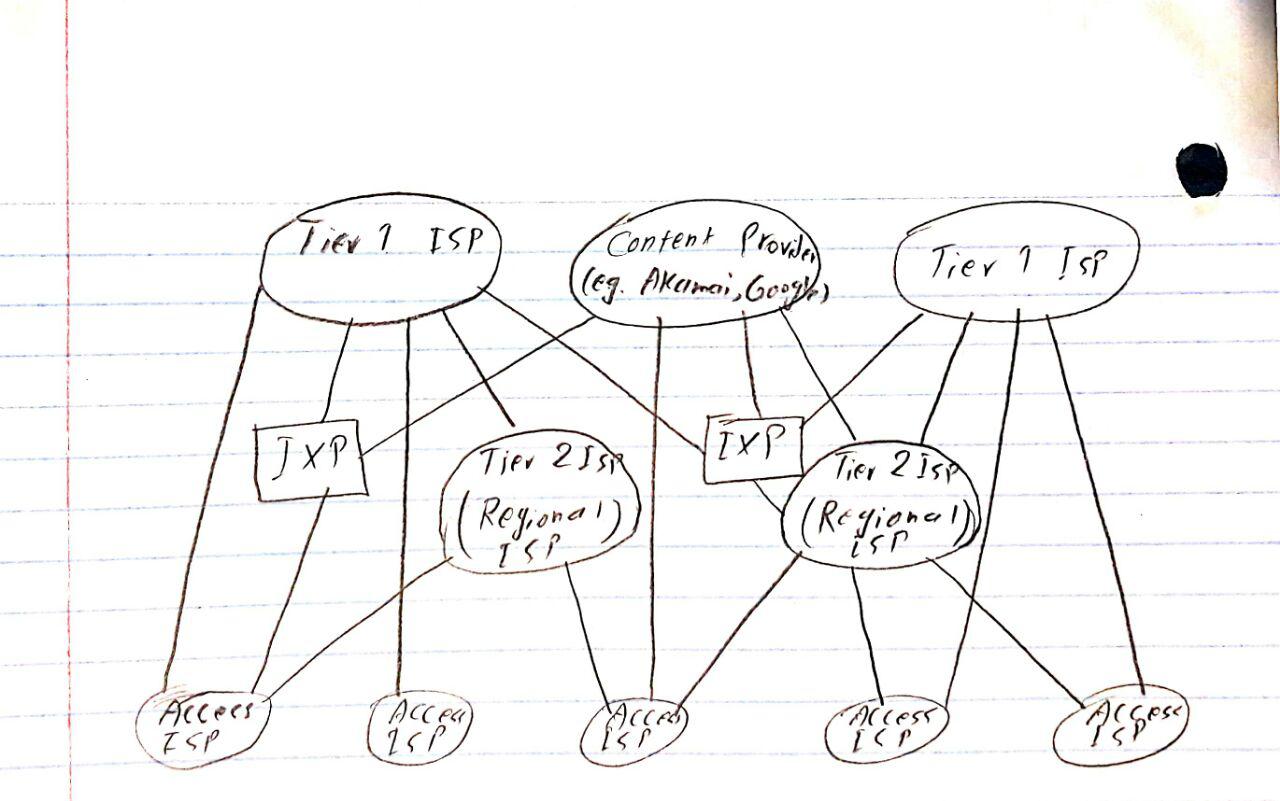 Tier 1 ISP
Content Provider
(eg. Akamai, Google)
Tier 1 ISP
IXP
Tier 2 ISP
(Regional)
ISP
IXP
Tier 2 ISP
(Regional)
ISP
Access
ISP
Access
ISP
Access
ISP
Access
ISP
Access
ISP